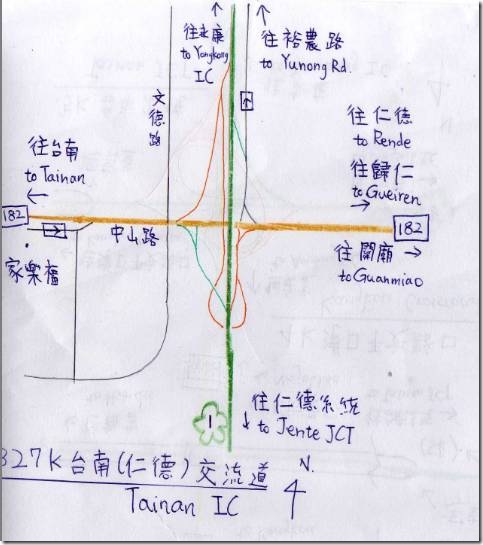 往永康
to Yongkang
IC
往裕農路
to Yunong Rd.
文德路
往台南
to Tainan
182
中山路
家樂福
往仁德
to Rende
往歸仁
to Gueiren
182
往關廟
to Guanmiao
1
往仁德系統
to Jente JCT
327K台南(仁德)交流道
Tainan IC
N.